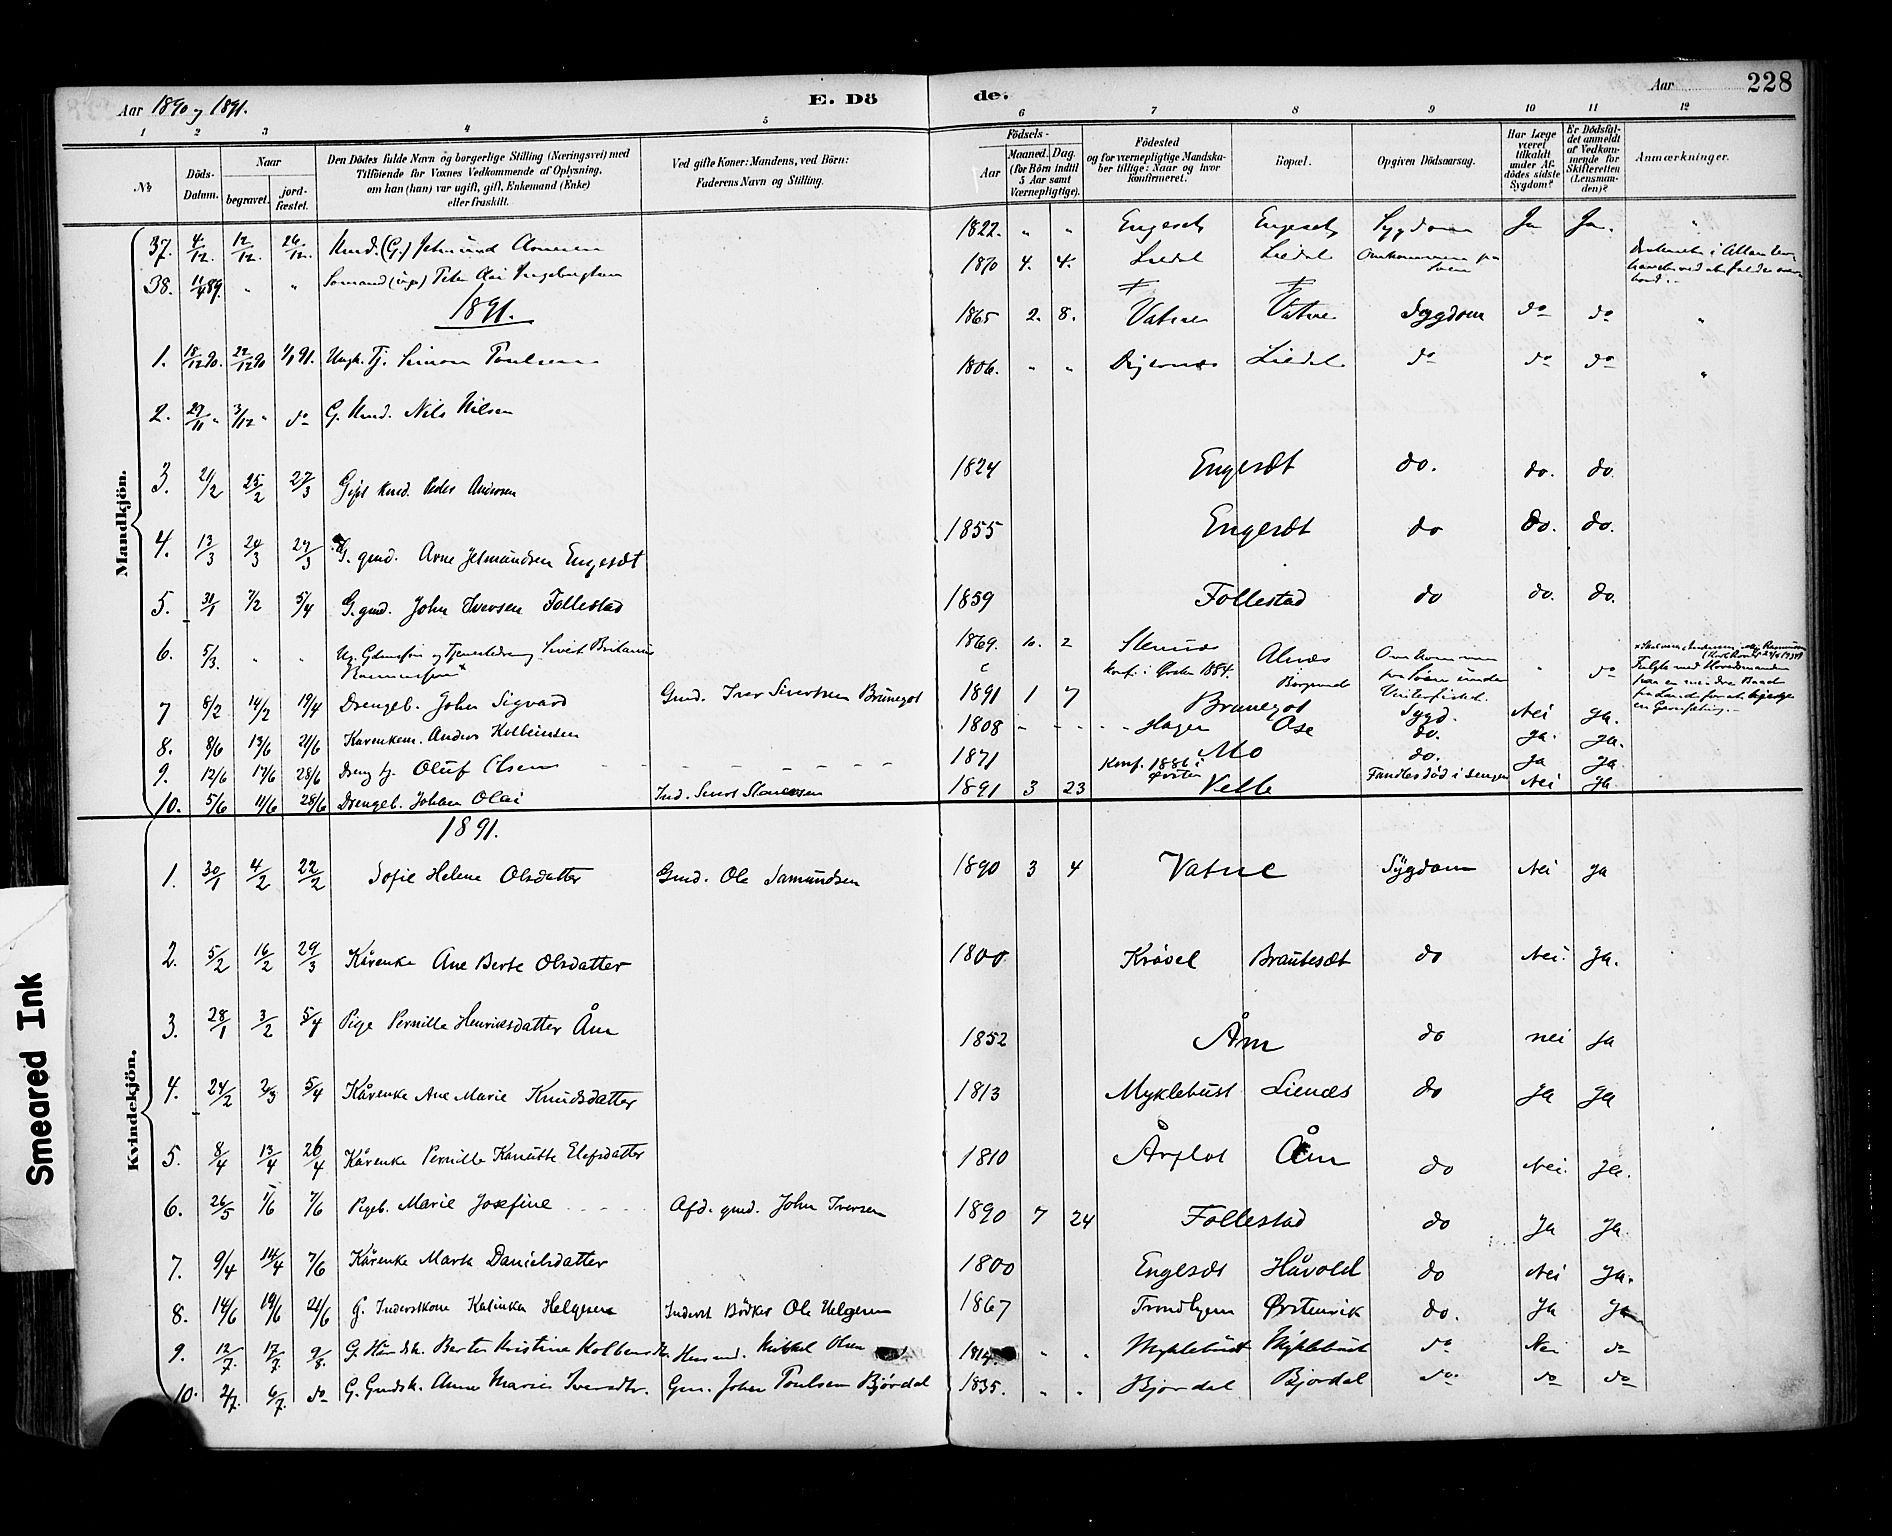 Aar 1890 og 1891. E. Dö de. Aar 228
1 2 3 4 5 6 7 8 9 10 11 12
No Döds-Datum. Naar begravet. jord-fæstet. Den Dödes fulde Navn og borgerlige Stilling (Næringsvei) med Tilföiende for Voxnes Vedkommende af Oplysning, om han (hun) var ugift, gift, Enkemand (Enke) eller fraskilt. Ved gifte Koner: Mandens, ved Börn: Faderens Navn og Stilling. Födsels- Aar Maaned. Dag. (for Börn indtil 5 Aar samt Værnepligtige). Födested og for værnepligtige Mandskaber tillige: Naar og hvor konfirmeret. Bopæl. Opgiven Dödsaarsag. Har Læge været tilkaldt under Afdödes sidste Sygdom? Er Dödsfaldet anmeldt af Vedkommende for Skifteretten (Lensmanden)? Anmærkninger.
Mandkjön.
37. 4/12. 12/12. 26/12. Kmd. (G.) Jetmund Arnesen 1822. " " Engeset Engeset Sygdom Ja Ja. "
38. 11/4 89. " " Sømand (ugo) Peter Olai 1870 4. 4. Liedal Liedal Omkommen paa Søen
1891.
1. 18/12 90. 27/12 90 1/1 91. Ungk. Tj. Simon Poulsen 1865 2. 8. Vatne Vatne Sygdom do do "
2. 27/11 " 3/12 " do G. Kmd. Nils Nilsen 1806. " " Digernes Liedal do do do "
3. 21/2 25/2 27/3 Gift Kmd. Peder Andersen 1824 Engesæt do. do. do.
4. 13/3 24/3 27/3 G. gmd. Arne Jetmundsen Engesæt 1855 Engesæt do do. do.
5. 31/1 7/2 5/4 G. gmd. John Iversen Follestad 1859 Follestad do do. do.
6. 5/3. " " Ug. Gdmssøn og Tjenestedreng Sivert Britanius Rasmussøn x 1869. 10. 2 Stennes konf. i Ørsten 1884. Alnæs Borgund Omkommen paa Søen under Vinterfisket. " do
7 8/2 14/2 19/4 Drengeb. John Sigvard Gmd. Iver Sivertsen Brunegot 1891 1 7 Brunegot Sygd. Nei Ja.
8. 8/6 13/6 21/6 Kårenkem. Anders Kolbeinsen 1808 - - - - - Hagen Ose do. Ja. Ja.
9. 12/6 17/6 28/6 Dreng tj. Oluf Olsen - - - - - - 1871 Konf. 1886 i Ørsten Mo do. Ja Ja
10. 5/6 11/6 28/6 Drengeb. Johan Olai Ind. Sivert 1891 3 23 Velle Fandtes död i Sengen Nei Ja.
1891.
Kvindekjön.
1. 30/1 4/2 22/2 Sofie Helene Olsdatter Gmd. Ole Samundsen 1890 3 4 Vatne Sygdom Nei Ja
2. 5/2 16/2 29/3 Kårenke Ane Berte Olsdatter 1800 Krøvel Brautesæt do Nei. Ja.
3. 28/1 3/2 5/4 Pige Pernille Henriksdatter Åm 1852 Åm do nei Ja
4. 24/2 2/3 5/4 Kårenke Ane Marie Knudsdatter 1813 Myklebust Lienæs do Ja Ja
5. 8/4 13/4 26/4 Kårenke Pernille Kanutte Elefsdatter 1810 Årflot Åm do Nei. Ja.
6. 26/5 1/6 7/6 Pigeb. Marie Josefine - - - - Afd. gmd. John Iversen 1890 7 24 Follestad do Ja Ja.
7. 9/4 14/4 7/6 Kårenke Marte Danielsdatter 1800 Engesæt Håvold do Nei Ja.
8. 14/6 19/6 21/6 G. Inderstkone Katinka Helgesen Inderst Bödker Ole Helgesen 1867 Trondhjem Ørstenvik do. Ja Ja
9. 12/7. 17/7 9/8. G. Berte Kristine Kolbensdtr. Mikkel Olsen 1814 " " Myklebust Myklebust do Nei do
10. 2/7. 6/7. do G. Gmdsk. Anne Marie Iversdtr. Gm. Johan Poulsen Bjørdal 1835. " " Bjørdal Bjørdal do. do do
Smeared Ink